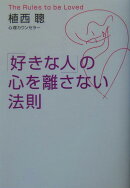 The Rules to be Loved
植西 聰
心理カウンセラー
「好きな人」の
心を離さない
法則